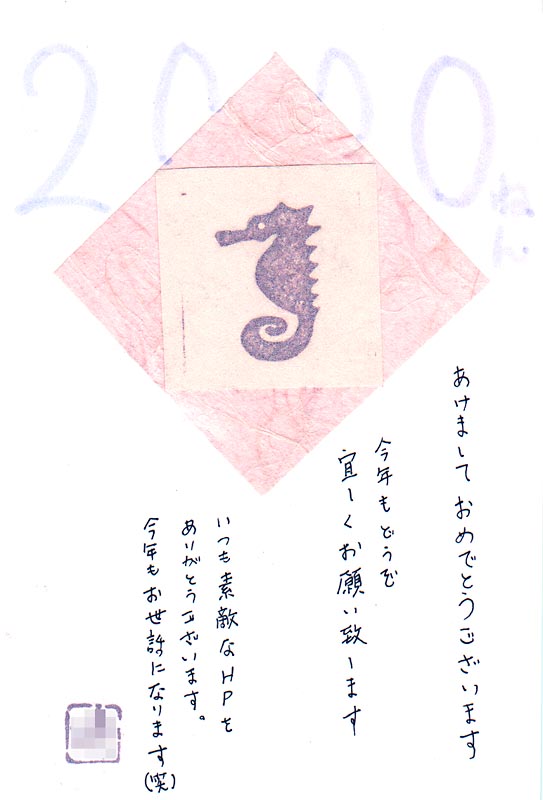 2000ねん
あけまして おめでとうございます
今年もどうぞ
宜しくお願い致します
いつも素敵なHPを
ありがとうございます。
今年もお世話になります(笑)